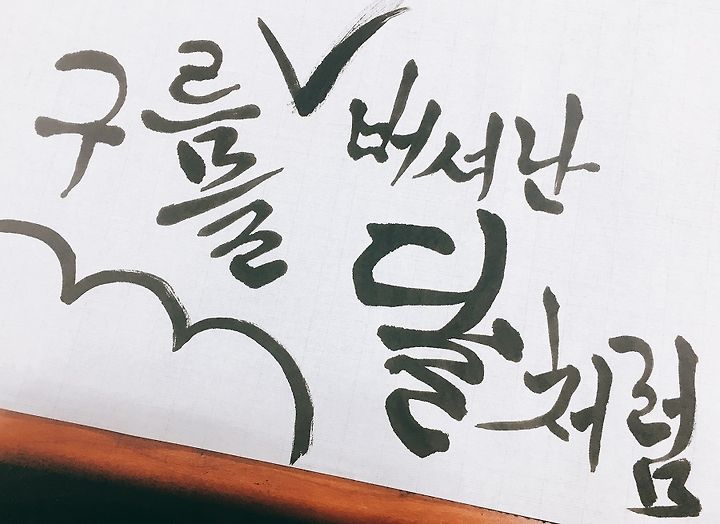 구름을 벗어난
달처럼